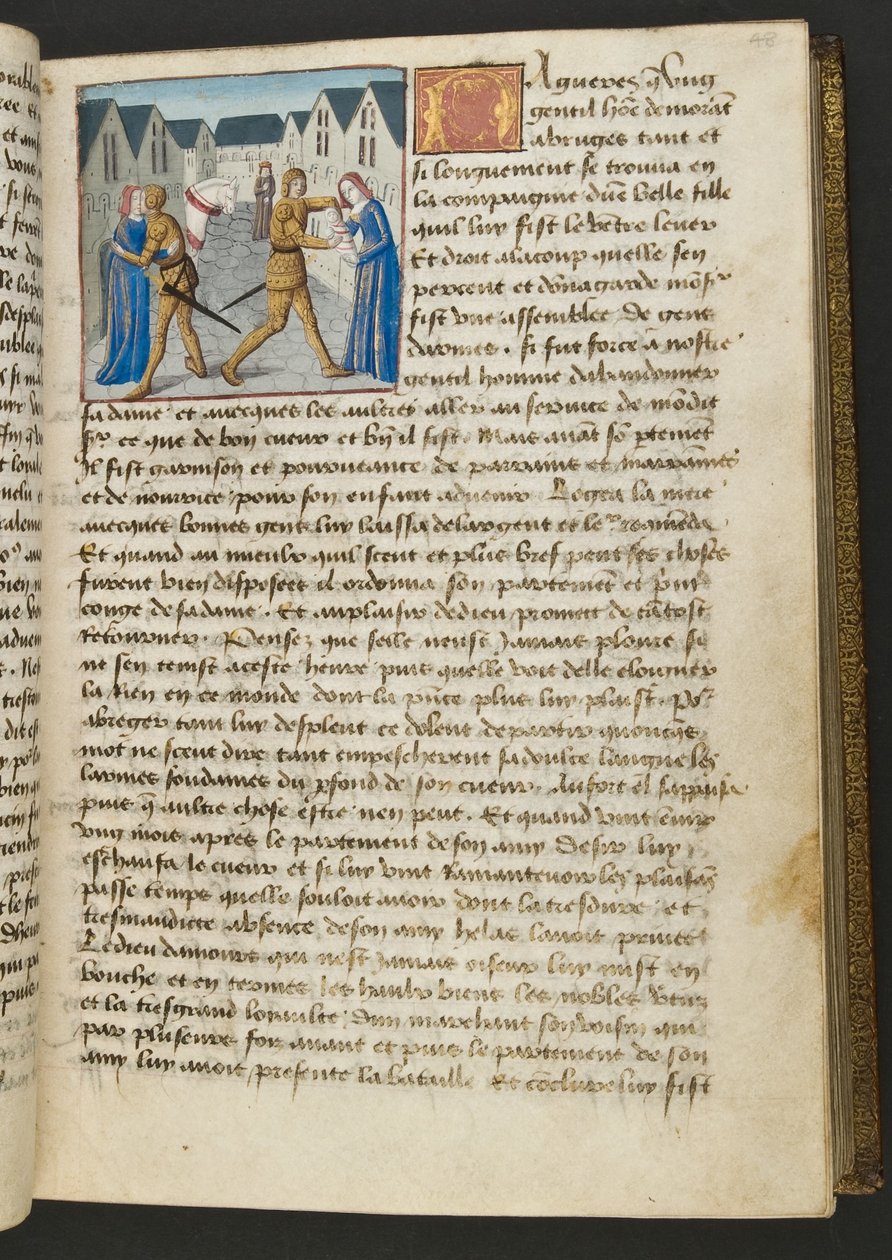 48
Nagueres q̃ vng
gentil hõe demorãt
a bruges tant et
si longuement se trouua en
la compaignie dũe belle fille
quil luy fist le vẽtre leuer
Et droit alacoup quelle sen
perceut et dõna garde monsr
fist vne assemblee de gens
darmes . si fut force a nostre
gentil homme dabandonner
sa dame et auecques les aultres aller au seruice de mõdit
sr ce que de bon cueur et bñ il fist . Mais auãt sõ ꝑtemẽt
Il fist garnison et pourueance de parrains et marraines
et de nourrice pour son enfant aduenir Logea la mere
auecques bonnes gens luy laissa de largent et les recõmẽda
Et quand au mieulx quil sceut et plus bref peut ses choses
furent bien disposees il ordonna son partemẽt et print
conge de sa dame . Et au plaisir de dieu promect de tãtost
Retourner . Pensez que selle neust Jamais ploure si
ne sen teinst a ceste heure puis quelle voit delle eslonguer
la Rien en ce monde dont la p̃nce plus luy plaist . Por
abreger tant luy despleut ce dolent departir quoncq̃s
mot ne sceut dire tant empescherent sa doulce langue les
larmes sourdantes du ꝑfond de son cueur . Au fort el sappaisa
puis q̃ aultre chose estre nen peut . Et quand vint enuir
vng mois apres le partement de son amy Desir luy
eschaufa le cueur et si luy vint Ramanteuoir les plaisãs
passe temps quelle souloit auoir dont la tresdure et
tresmaudicte absence de son amy helas lauoit priuee
Le dieu damours qui nest Jamais oiseux luy mist en
bouche et en termes les haulx biens les nobles vertuz
et la tresgrand loyaulte dun marchant son voisin qui
par pluseurs foiz auant et puis le partement de son
amy luy auoit presente la bataille Et cõclure luy fist